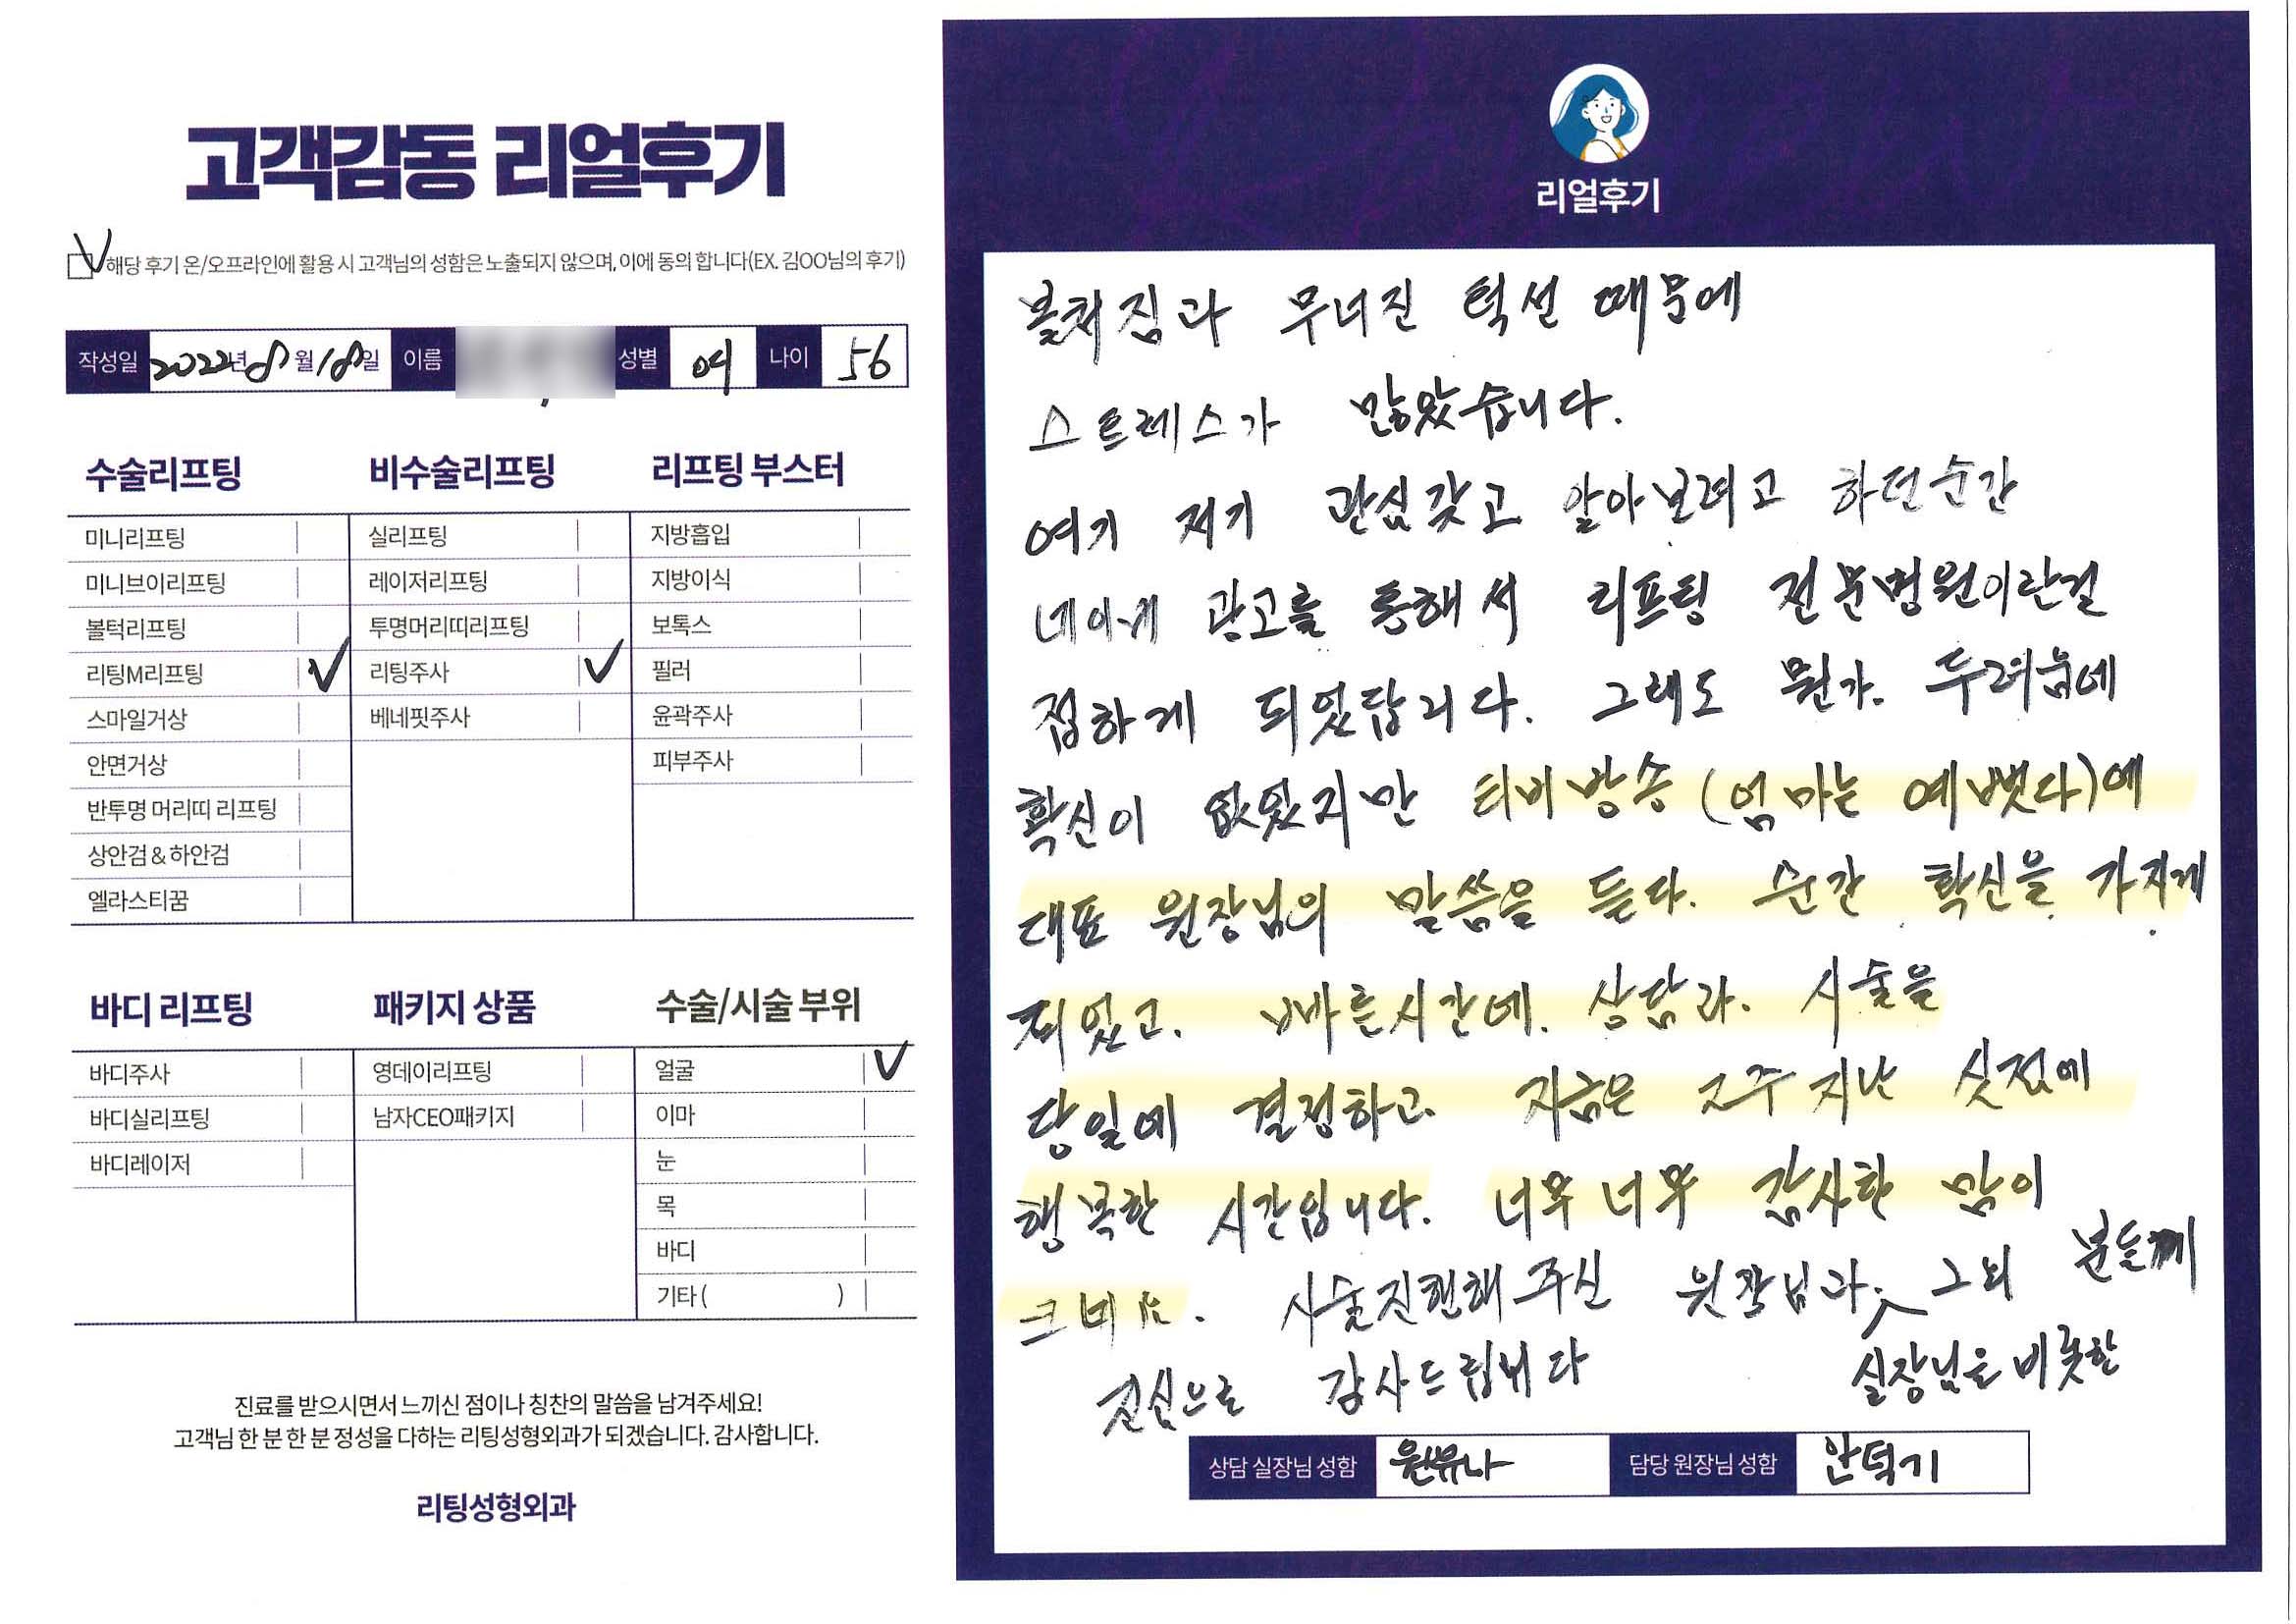 고객감동 리얼후기
해당 후기 온/오프라인에 활용 시 고객님의 성함은 노출되지 않으며, 이에 동의 합니다(EX. 김OO님의 후기)
작성일 2022년 8월 18일 이름 성별 여 나이 56
수술리프팅
미니리프팅
미니브이리프팅
볼턱리프팅
리팅M리프팅 ✓
스마일거상
안면거상
반투명 머리띠 리프팅
상안검 & 하안검
엘라스티꿈
비수술리프팅
실리프팅
레이저리프팅
투명머리띠리프팅
리팅주사 ✓
베네핏주사
리프팅 부스터
지방흡입
지방이식
보톡스
필러
윤곽주사
피부주사
바디 리프팅
바디주사
바디실리프팅
바디레이저
패키지 상품
영데이리프팅
남자CEO패키지
수술/시술 부위
얼굴 ✓
이마
눈
목
바디
기타 ( )
진료를 받으시면서 느끼신 점이나 칭찬의 말씀을 남겨주세요!
고객님 한 분 한 분 정성을 다하는 리팅성형외과가 되겠습니다. 감사합니다.
리팅성형외과
리얼후기
볼처짐과 무너진 턱선 때문에
스트레스가 많았습니다.
여기 저기 관심갖고 알아보려고 하던순간
네이버 광고를 통해서 리프팅 전문병원이란걸
접하게 되었답니다. 그래도 뭔가. 두려움에
확신이 없었지만 티비방송 (엄마는 예뻤다)에
대표 원장님의 말씀을 듣다. 순간 확신을 가지게
되었고. 빠른시간에. 상담과. 시술을
당일에 결정하고 지금은 2주 지난 싯점에
행복한 시간입니다. 너무너무 감사한 맘이
크네요. 시술진행해 주신 원장님과. 그외 분들께
실장님을 비롯한
진심으로 감사드립니다
상담 실장님 성함 담당 원장님 성함 안덕기